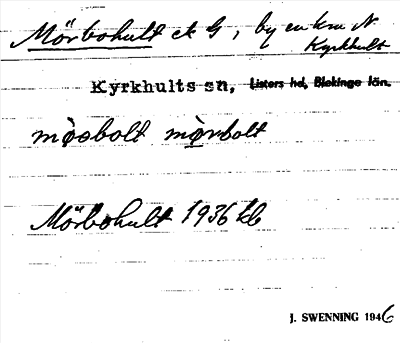 Mörbohult ek G, by en km N
Kyrkhult
Kyrkhults sn, Listers hd, Blekinge län.
mòsbolt mòrbolt
Mörbohult 1936 kb
J. SWENNING 1946